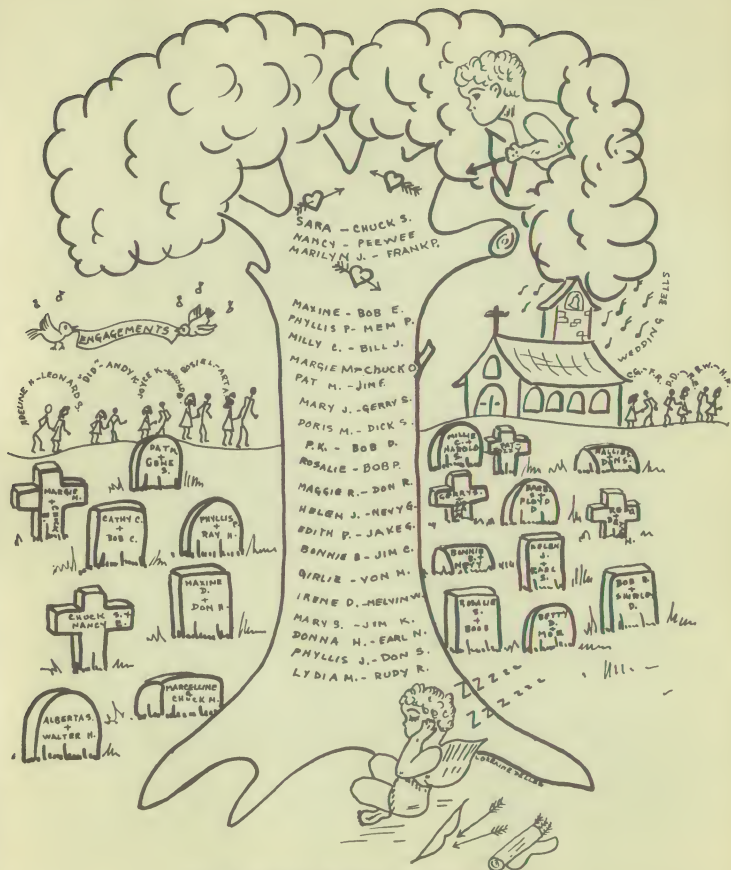 SARA - CHUCK S.
NANCY - PEEWEE
MARILYN J. - FRANK P.
MAXINE - BOB E.
PHYLLIS P - MEM P.
MILLY C. - BILL J.
MARGIE Mc - CHUCK O
PAT M. - JIM F.
MARY J. - GERRY S.
DORIS M. - DICK S.
P.K. - BOB D.
ROSALIE - BOB P.
MAGGIE R. - DON R.
HELEN J. - NEVY G.
EDITH P. - JAKE G.
BONNIE B - JIM C.
GIRLIE - VON M.
IRENE D. - MELVIN W.
MARY S. - JIM K.
DONNA H. - EARL N.
PHYLLIS J. - DON S.
LYDIA M. - RUDY R.
ENGAGEMENTS
ADELINE H - LEONARD S.
"DID" - ANDY K
JOYCE K. - HAROLD
ROSIE L. - ART
WEDDING BELLS
C.G. - F.R.
D.D.
R.W. - H.
PAT K
+
GENE
S.
MARGIE
CATHY C.
+
BOB C.
PHYLLIS P.
+
RAY H.
MAXINE
D.
+
DON
CHUCK S. +
NANCY
ALBERTA S.
+
WALTER H.
MARCELLINE
&
CHUCK M.
MILLIE
C. +
HAROLD
S.
PAT
HALLIE
DON S.
GERRY S.
BARB
FLOYD
D.
BONNIE
B. +
NEVY
HELEN
J.
+
KARL
S.
BOB B.
+
SHIRLEY
D.
ROSALIE
+
BOB B
BETTY
D.
+
MOR
ZZZZZ
ZZZZZZ
LORRAINE